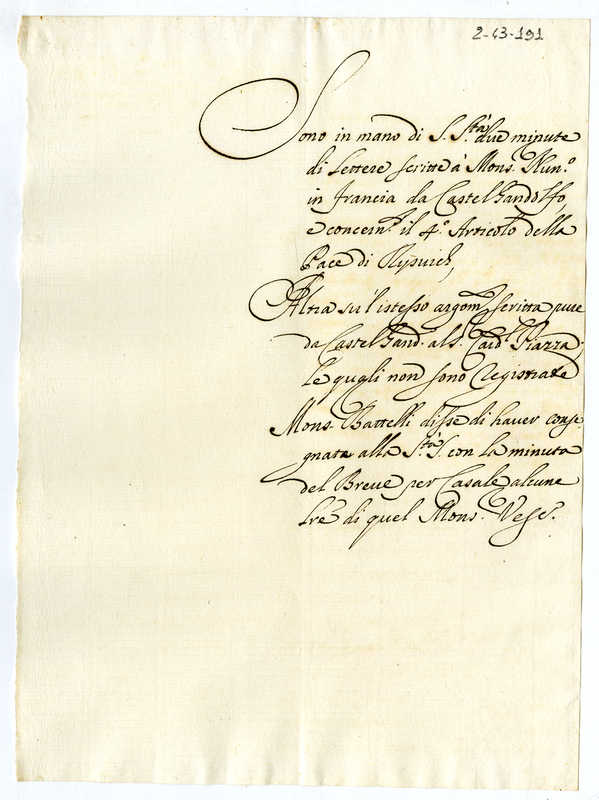 2-43-191
Sono in mano di S. S.tà due minute
di lettere scritte à Mons. Nun.o
in francia da Castel Gandolfo,
e concern.ti il 4.o Articolo della
Pace di Rysuich,
Altra sù l'istesso argom.to scritta pure
da Castel Gand. al S. Card.l Piazza;
le quali non sono registrate
Mons. Battelli disse di haver conse-
gnate alla S.tà S. con la minuta
del Breve per Casale alcune
lre di quel Mons. Vesc.